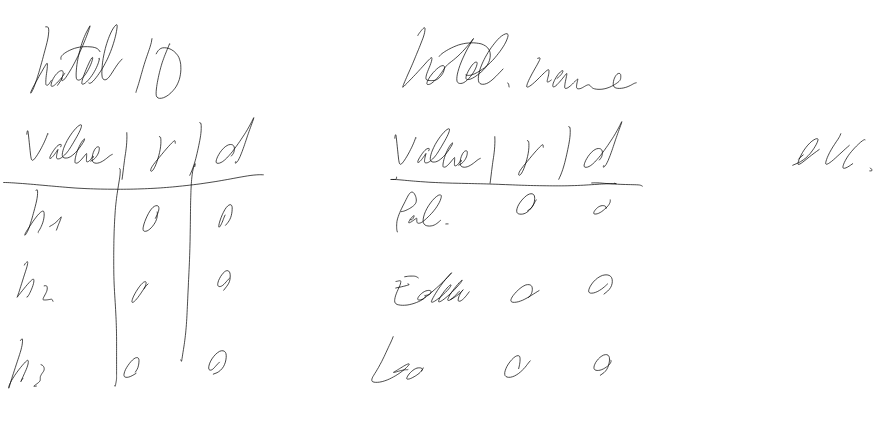 hotel ID
Value | r | d
h1 0 0
h2 0 0
h3 0 0
hotel. name
Value | r | d
Pal. 0 0
Eden 0 0
Leo 0 0
etc.